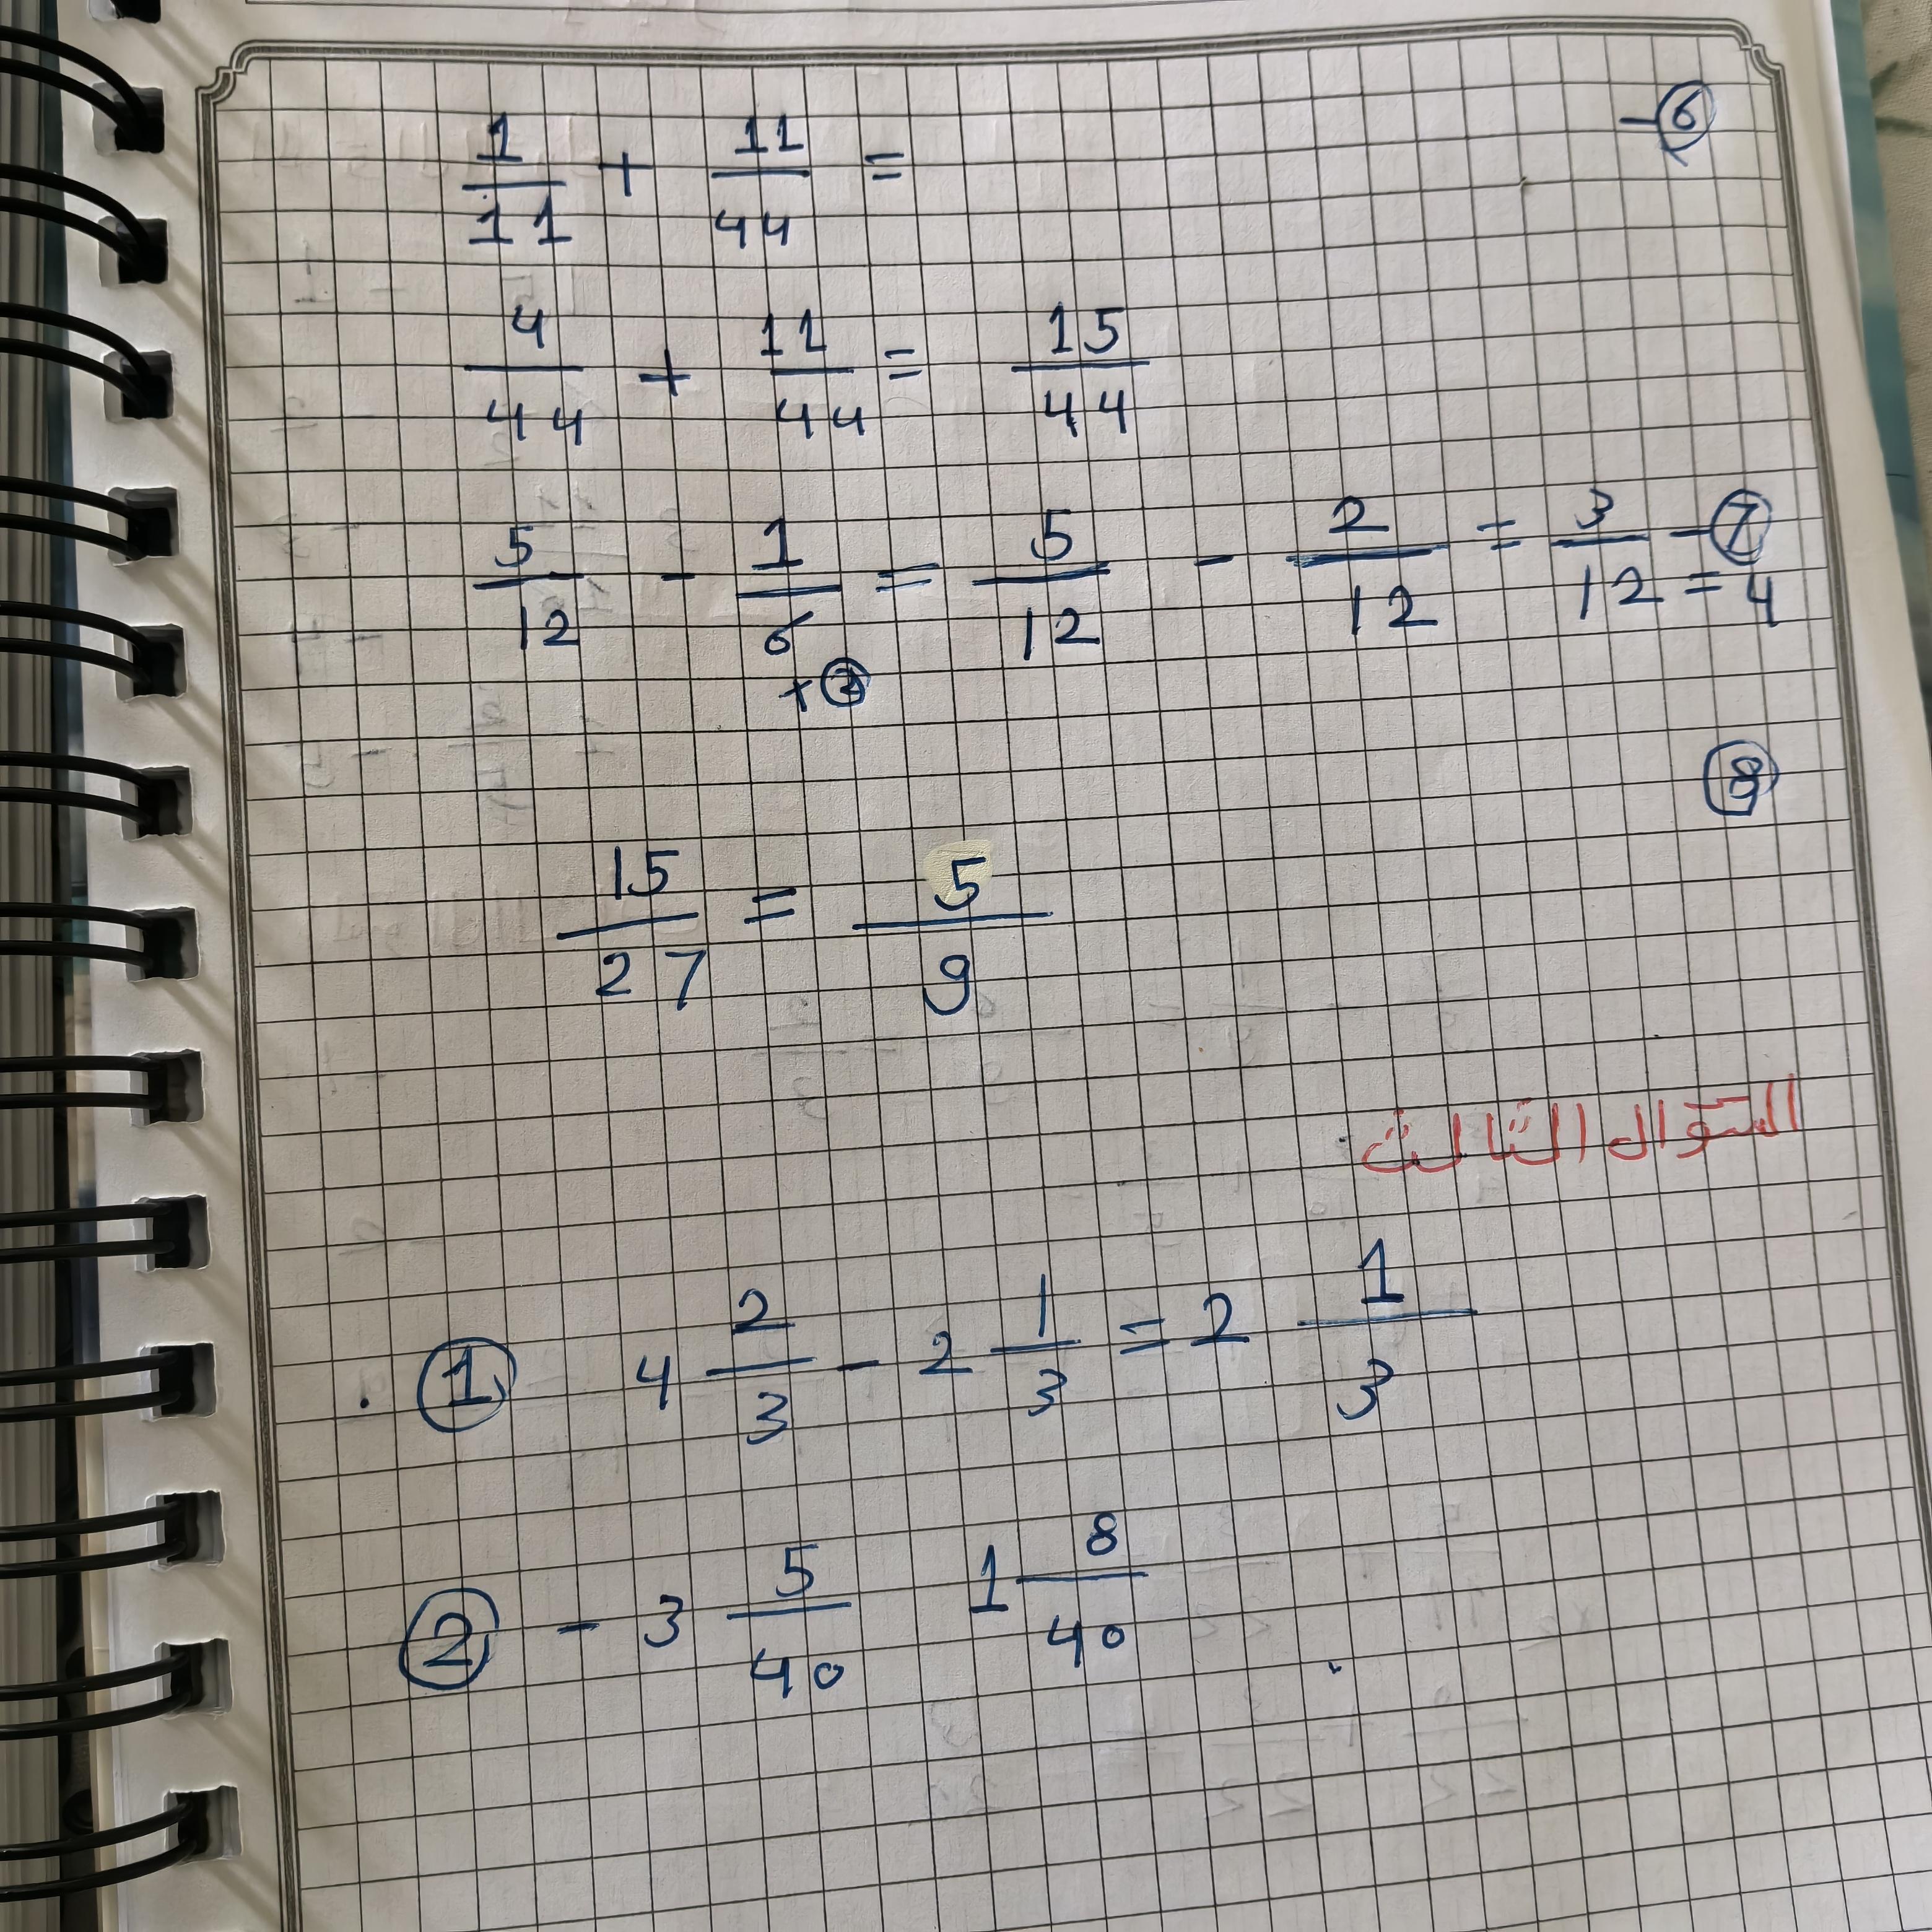 6 -
1/11 + 11/44 =
4/44 + 11/44 = 15/44
5/12 - 1/6 = 5/12 - 2/12 = 3/12 - 7
= 4
× 2
8
15/27 = 5/9
السؤال الثالث
1 4 2/3 - 2 1/3 = 2 1/3
2 - 3 5/40 1 8/40